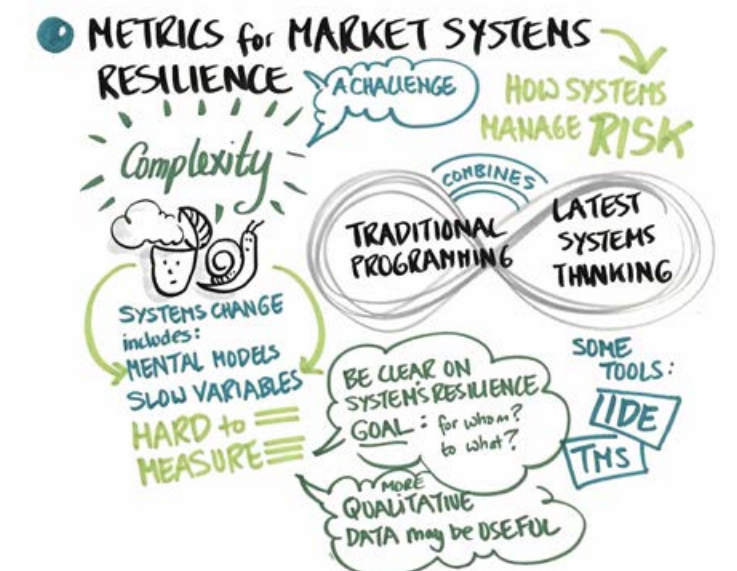 METRICS for MARKET SYSTEMS
RESILIENCE
A CHALLENGE
HOW SYSTEMS
MANAGE RISK
Complexity
COMBINES
TRADITIONAL
PROGRAMMING
LATEST
SYSTEMS
THINKING
SYSTEMS CHANGE
includes:
MENTAL MODELS
SLOW VARIABLES
HARD to
MEASURE
BE CLEAR ON
SYSTEM'S RESILIENCE
GOAL: for whom?
to what?
SOME
TOOLS:
IIDE
TMS
MORE
QUALITATIVE
DATA may be USEFUL